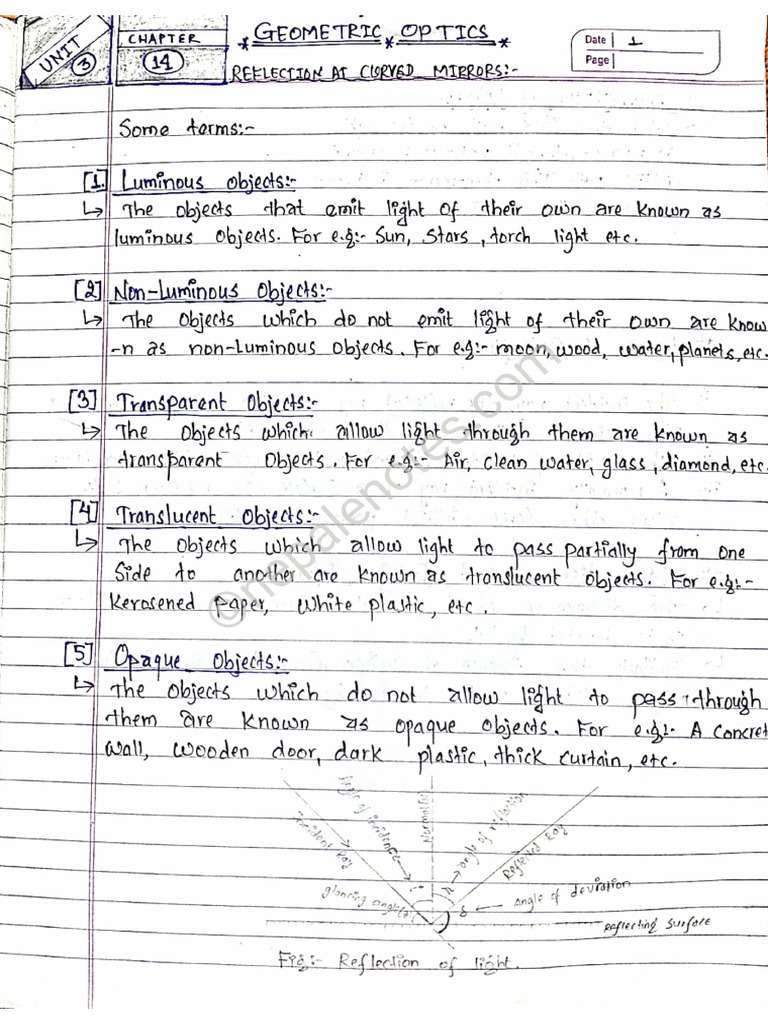 UNIT 3
CHAPTER 14
* GEOMETRIC * OPTICS *
REFLECTION AT CURVED MIRRORS:-
Date 1
Page
Some terms:-
[1] Luminous Objects:-
↳ The objects that emit light of their own are known as
luminous objects. For e.g:- Sun, Stars, torch light etc.
[2] Non-Luminous Objects:-
↳ The objects which do not emit light of their own are know
-n as non-luminous objects. For e.g:- moon, wood, water, planets, etc.
[3] Transparent Objects:-
↳ The objects which allow light through them are known as
transparent objects. For e.g:- Air, clean water, glass, diamond, etc.
[4] Translucent Objects:-
↳ The objects which allow light to pass partially from one
side to another are known as translucent objects. For e.g:-
Kerosened paper, white plastic, etc.
[5] Opaque Objects:-
↳ The objects which do not allow light to pass through
them are known as opaque objects. For e.g:- A concret
wall, wooden door, dark plastic, thick curtain, etc.
incident Ray
Angle of incidence
i
Normal
r
angle of reflection
Reflected Ray
glancing angle
δ
Angle of deviation
reflecting surface
Fig:- Reflection of light.
©nepalenotes.com